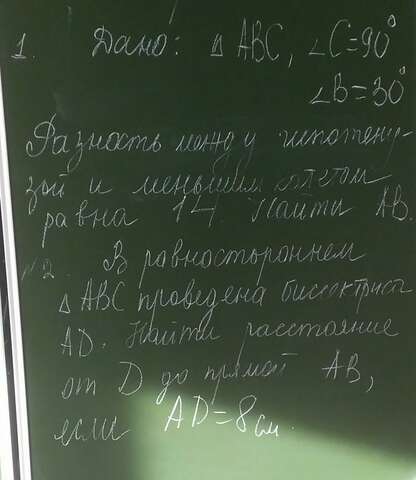 1. Дано: △ ABC, ∠C=90°
∠B=30°
Разность между гипотену-
зой и меньшим катетом
равна 14. Найти AB.
№2. В равностороннем
△ ABC проведена биссектриса
AD. Найти расстояние
от D до прямой AB,
если AD=8 см.